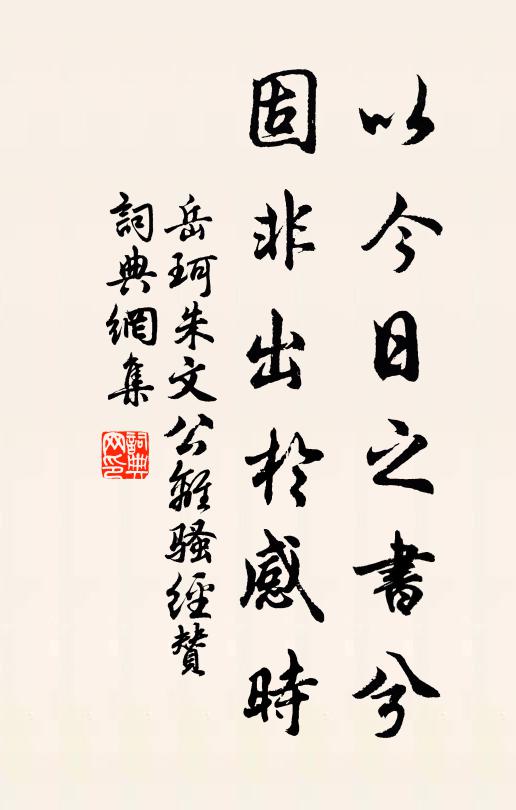 以今日之書兮
固非出於感時
岳珂朱文公離騷經贊
詞典網集
詞典
网印